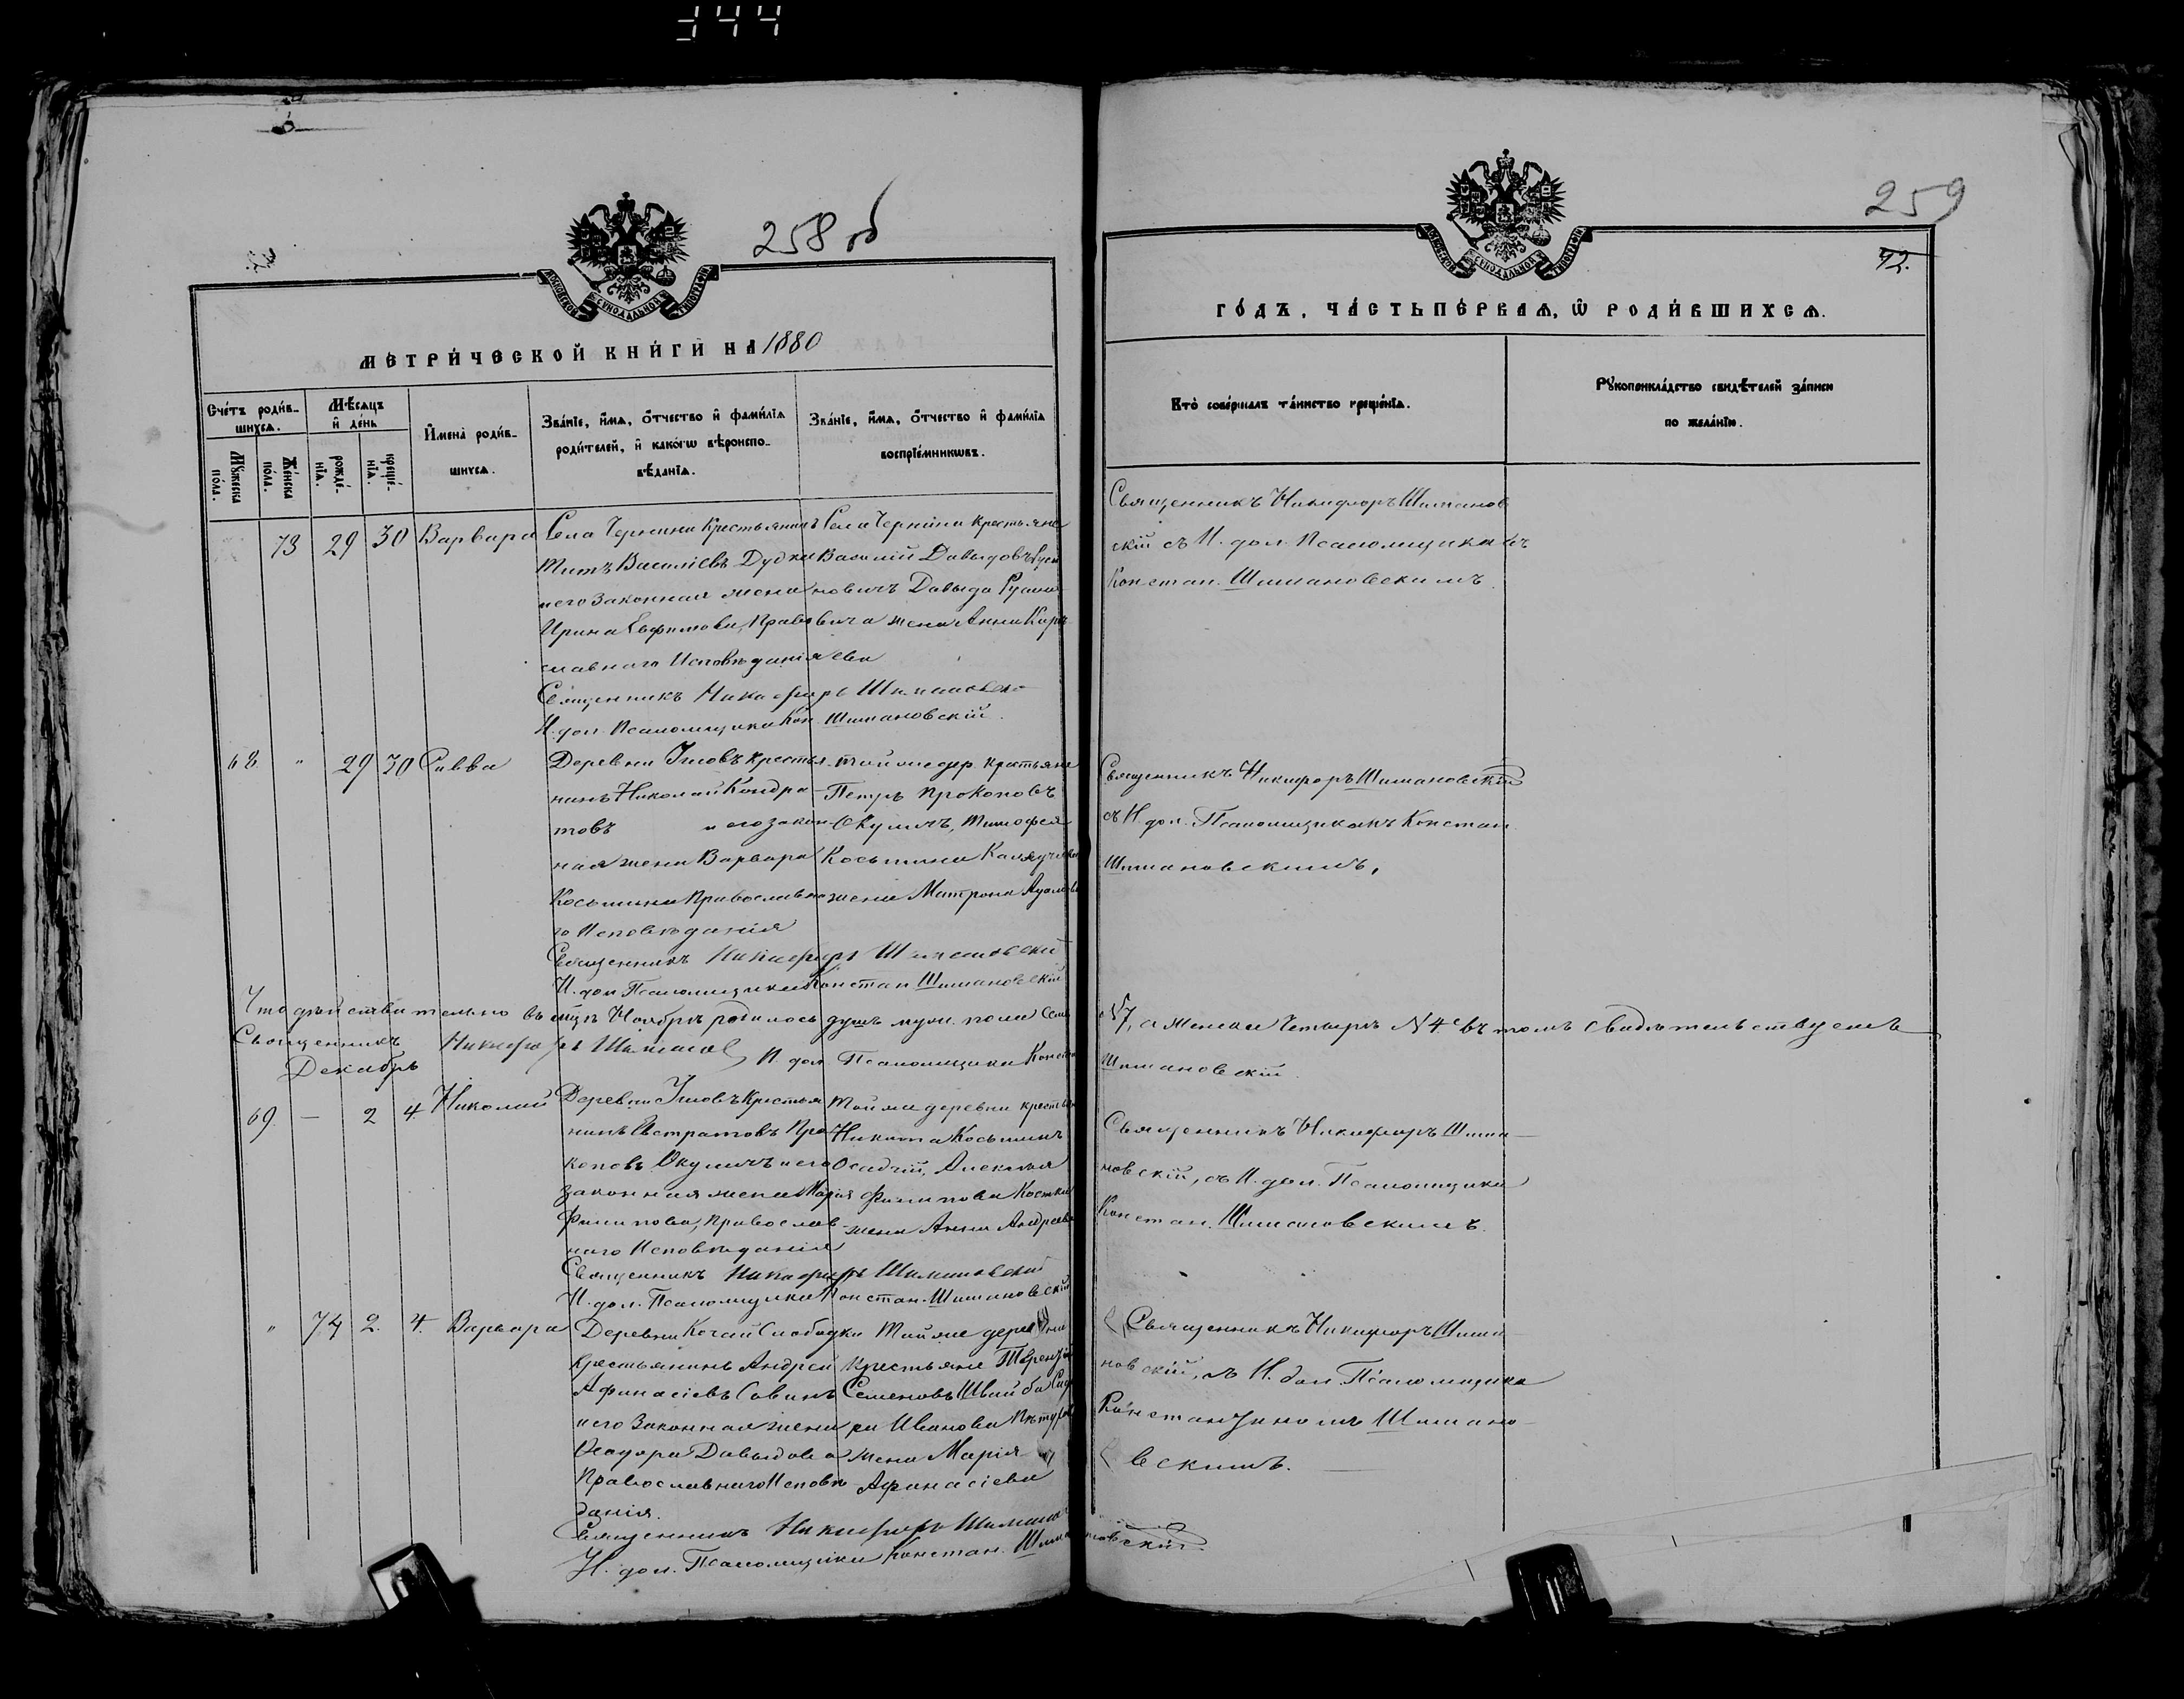 344
258 об
МОСКОВСКОЙ СУНОДАЛЬНОЙ ТИПОГРАФІИ
МЕТРИ́ЧЕСКОЙ КНИ́ГИ НА 1880
Сче́тъ роди́вшихсѧ.
Мѣ́сѧцъ и҆ де́нь
Мꙋ́жеска по́ла.
Же́нска по́ла.
рожде́нїѧ.
креще́нїѧ.
И҆мена̀ роди́вшихсѧ.
Зва́нїе, и҆́мѧ, ѻ҆́тчество и҆ фами́лїѧ
роди́телей, и҆ како́гѡ вѣроиспо-
вѣ́данїѧ.
Зва́нїе, и҆́мѧ, ѻ҆́тчество и҆ фами́лїѧ
воспрїе́мникѡвъ.
73 29 30 Варвара
Села Чернина Крестьянинъ
Титъ Василіевъ Дудка
и его законная жена
Ирина Евфимова, Право
славнаго Исповѣданія
Села Чернина крестьяне
Василій Давыдовъ
новичъ Давыда
вича жена Анна
ева
Священникъ Никифоръ Шимановскі
И. дол. Псаломщика Кон. Шимановскій.
68 " 29 30 Савва
Деревни Углов Крестья-
нинъ Николай Кондра-
товъ и его закон-
ная жена Варвара
Косьмина Православна
го Исповѣданія
той же дер. крестьяне
Петръ Прокоповъ
Окуличъ, Тимофея
Косьмина
жена Матрона
Священникъ Никифоръ Шимановскій
И. дол Псаломщика Констан Шимановскій
Что дѣйствительно въ мцѣ Ноябрѣ родилось душъ муж. пола Семь
Священникъ Никифоръ Шиманов И. дол. Псаломщика Конста
Декабрь
69 — 2 4 Николай
Деревни Углов Крестья
нинъ Евстратовъ Про
коповъ Окуличъ и его
законная жена Марія
Филипова, Православ-
наго Исповѣданія
той же деревни крестьяне
Никита Косьминъ
Осадчій, Алексѣя
Филипова Костка
жена Анна Андреева
Священникъ Никифоръ Шимановскій
И. дол. Псаломщика Констан. Шимановскій
" 74 2. 4. Варвара
Деревни Качай Слободки
Крестьянинъ Андрей
Афанасіевъ Савинъ
и его Законная жена
Ѳеодора Давыдова
Православнаго Исповѣ
данія.
Той же деревни
крестьяне Терентій
Семеновъ Швайба
ра Иванова
жена Марія
Афанасіева
Священникъ Никифоръ Шиманов
И. дол. Псаломщика Констан. Шимановскій.
259
42.
МОСКОВСКОЙ СУНОДАЛЬНОЙ ТИПОГРАФІИ
ГО́ДЪ, ЧА́СТЬ ПЕ́РВАѦ, Ѡ҆ РОДИ́ВШИХСѦ.
Кто̀ соверша́лъ та́инство креще́нїѧ.
Рꙋкоприкла́дство свидѣ́телей за́писи
по жела́нїю.
Священникъ Никифоръ Шиманов
скій съ И. дол. Псаломщикамъ
Констан. Шимановскимъ.
Священникъ Никифоръ Шимановскій
съ И. дол. Псаломщикамъ Констан.
Шимановскимъ,
№7, а Женска Четыре №4 въ томъ свидѣтельствуемъ
Шимановскій.
Священникъ Никифоръ Шима-
новскій, съ И. дол. Псаломщика
Констан. Шимановскимъ.
Священникъ Никифоръ Шима-
новскій, съ И. дол. Псаломщика
Константиномъ Шимано-
вскимъ.